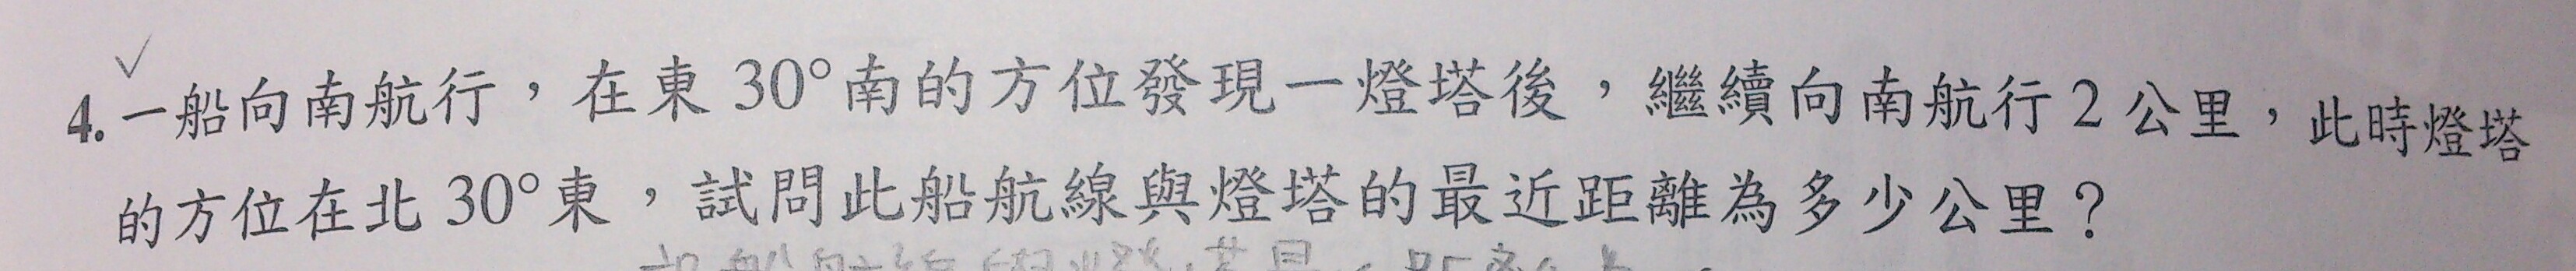 4.一船向南航行，在東30°南的方位發現一燈塔後，繼續向南航行2公里，此時燈塔
的方位在北30°東，試問此船航線與燈塔的最近距離為多少公里？